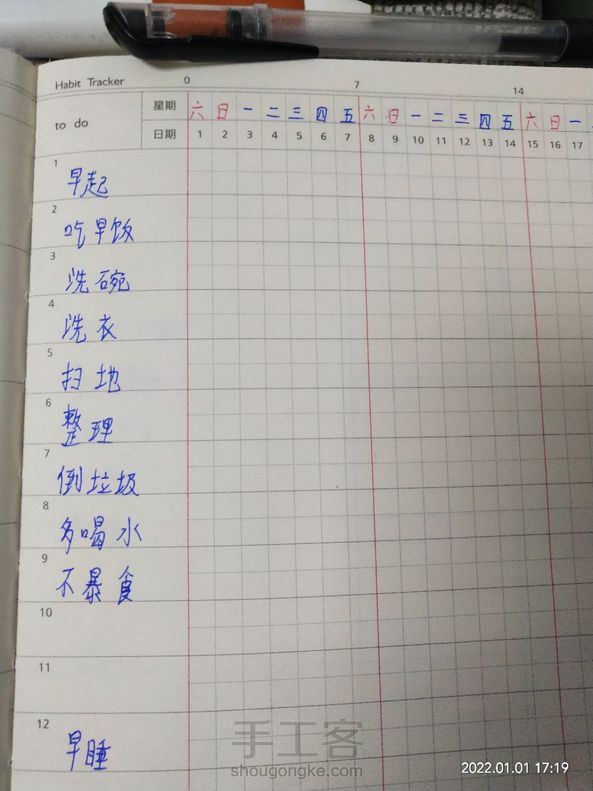 Habit Tracker 0 7 14
星期 六 日 一 二 三 四 五 六 日 一 二 三 四 五 六 日 一
to do
日期 1 2 3 4 5 6 7 8 9 10 11 12 13 14 15 16 17
1 早起
2 吃早饭
3 洗碗
4 洗衣
5 扫地
6 整理
7 倒垃圾
8 多喝水
9 不暴食
10
11
12 早睡
手工客
shougongke.com
2022.01.01 17:19